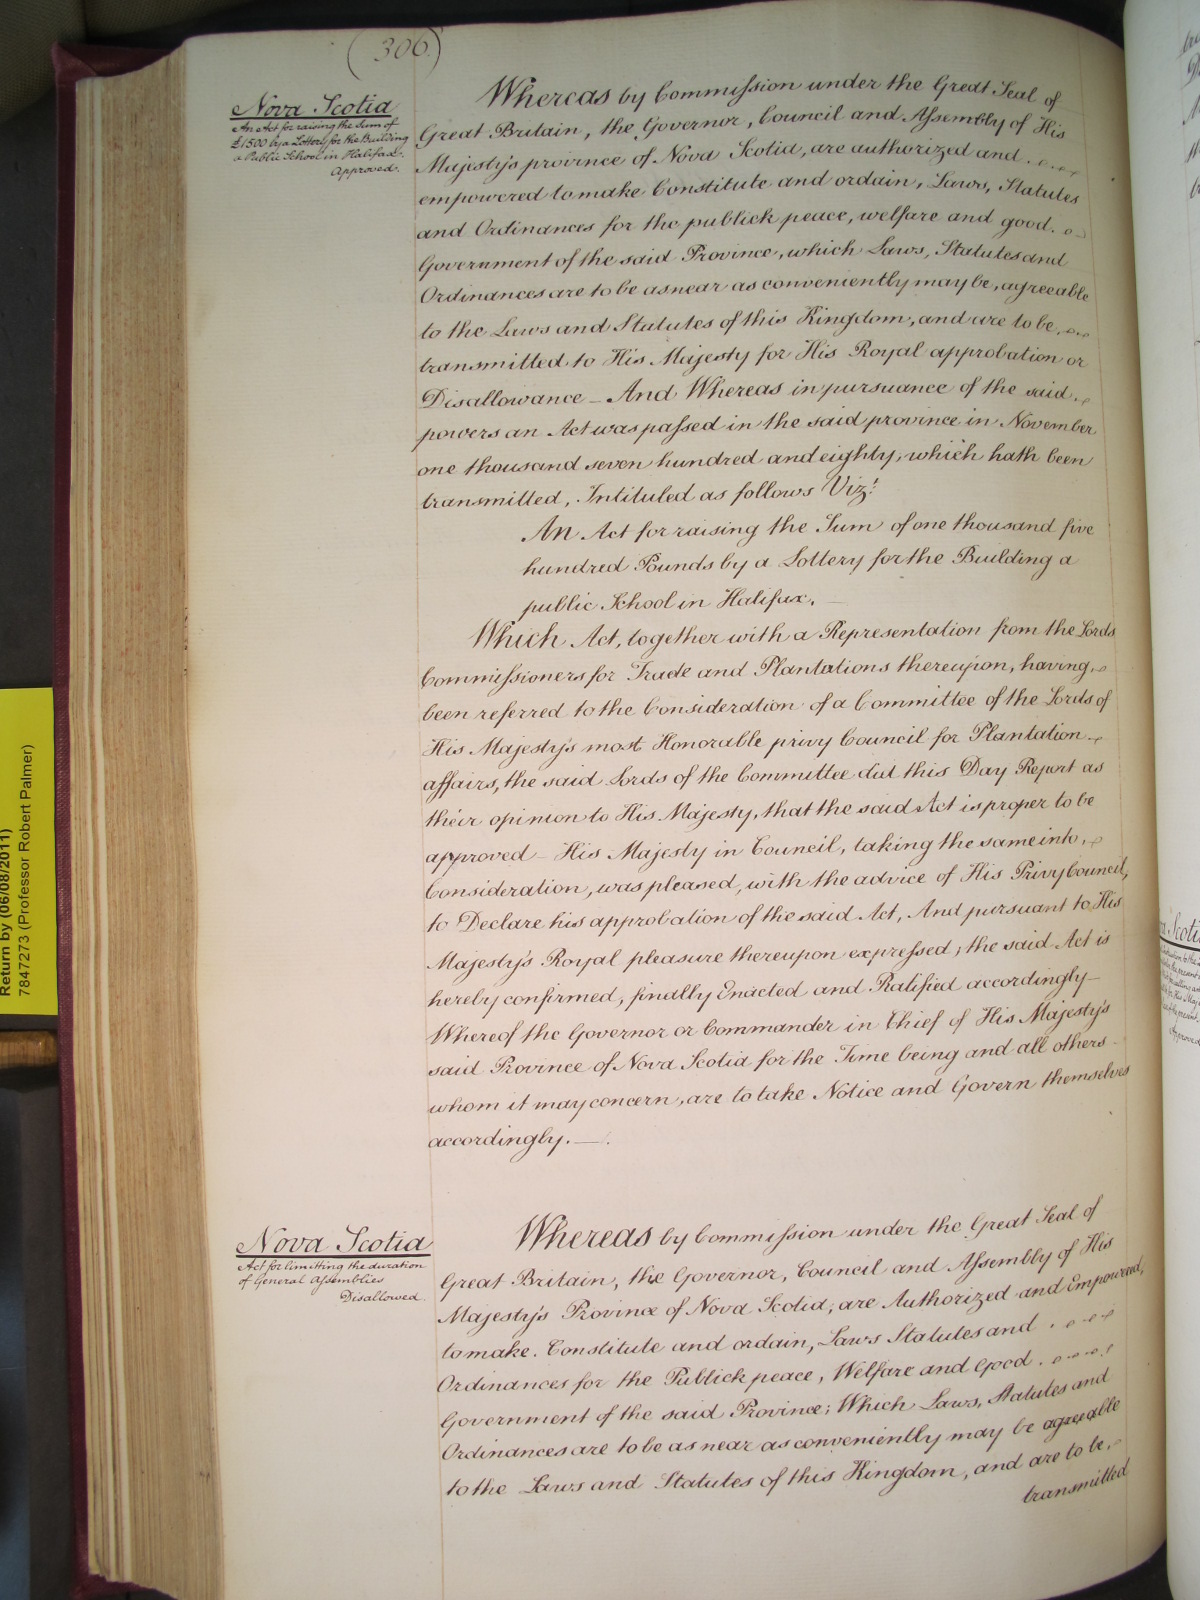 (306.)
Nova Scotia
An Act for raising the Sum of
£1500 by a Lottery for the Building
a Public School in Halifax.
Approved.
Whereas by Commission under the Great Seal of
Great Britain, the Governor, Council and Assembly of His
Majesty's province of Nova Scotia, are authorized and
empowered to make Constitute and ordain, Laws, Statutes
and Ordinances for the publick peace, welfare and good.
Government of the said Province, which Laws, Statutes and
Ordinances are to be as near as conveniently may be, agreeable
to the Laws and Statutes of this Kingdom, and are to be,
transmitted to His Majesty for His Royal approbation or
Disallowance - And Whereas in pursuance of the said
powers an Act was passed in the said province in November
one thousand seven hundred and eighty, which hath been
transmitted, Intituled as follows Vizt:
An Act for raising the Sum of one thousand five
hundred Pounds by a Lottery for the Building a
public School in Halifax. —
Which Act, together with a Representation from the Lords
Commissioners for Trade and Plantations thereupon, having
been referred to the Consideration of a Committee of the Lords of
His Majesty's most Honorable privy Council for Plantation
affairs, the said Lords of the Committee did this Day Report as
their opinion to His Majesty, that the said Act is proper to be
approved - His Majesty in Council, taking the same into,
Consideration, was pleased, with the advice of His Privy Council,
to Declare his approbation of the said Act, And pursuant to His
Majesty's Royal pleasure thereupon expressed; the said Act is
hereby confirmed, finally Enacted and Ratified accordingly—
Whereof the Governor or Commander in Chief of His Majesty's
said Province of Nova Scotia for the Time being and all others
whom it may concern, are to take Notice and Govern themselves
accordingly. —.
Nova Scotia
Act for limitting the duration
of General Assemblies
Disallowed.
Whereas by Commission under the Great Seal of
Great Britain, the Governor, Council and Assembly of His
Majesty's Province of Nova Scotia; are Authorized and Empowered,
to make. Constitute and ordain, Laws Statutes and
Ordinances for the Publick peace, Welfare and Good
Government of the said Province; Which Laws, Statutes and
Ordinances are to be as near as conveniently may be agreeable
to the Laws and Statutes of this Kingdom, and are to be,
transmitted
Return by (06/08/2011)
7847273 (Professor Robert Palmer)